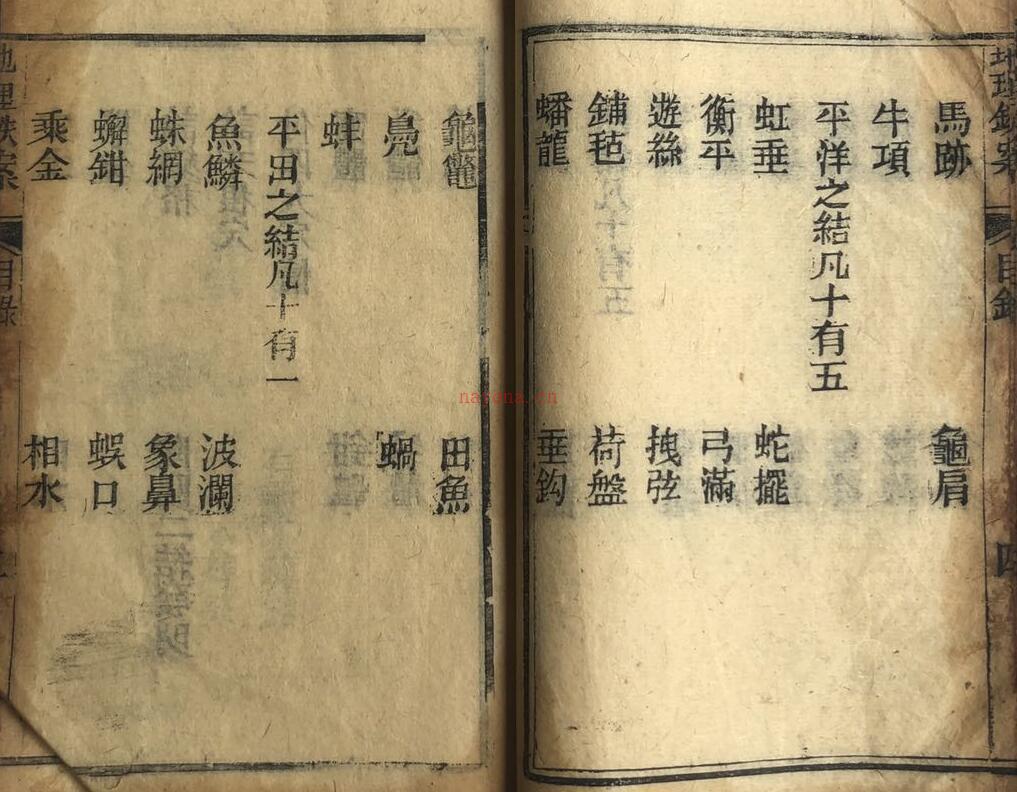 地理鉄案 目錄 四
馬跡 龜肩
牛項
平洋之結凡十有五
虹垂 蛇擺
衡平 弓滿
遊絲 拽弦
鋪毡 荷盤
蟠龍 垂鈎
龜 田魚
鳧 蝸
蚌
平田之結凡十有一
魚鱗 波瀾
蛛網 象鼻
蠏鉗 蜈口
乘金 相水
地理鉄案 目錄